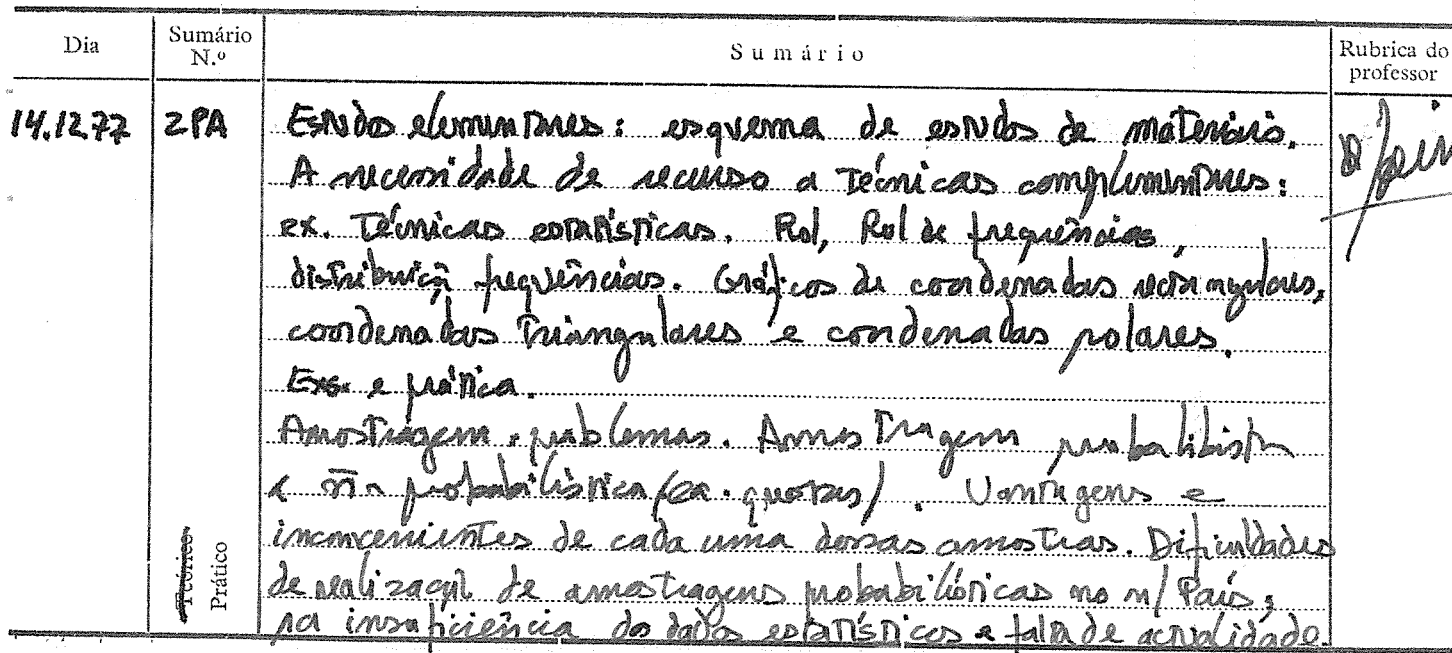 Dia
Sumário N.º
Sumário
Rubrica do professor
14.12.77
2PA
Estudos elementares: esquema de estudos de materiais.
A necessidade de recurso a técnicas complementares:
ex. Técnicas estatísticas. Rol, Rol de frequências,
distribuiçã frequências. Gráficos de coordenadas rectangulares,
coordenadas triangulares e coordenadas polares.
Exs. e prática.
Amostragem, problemas. Amostragem probabilista
e ñ probabilística (ex. quotas). Vantagens e
inconvenientes de cada uma dessas amostras. Dificuldades
de realização de amostragens probabilísticas no n/ País,
insuficiência dos dados estatísticos e falta de actualidade.
Teórico
Prático